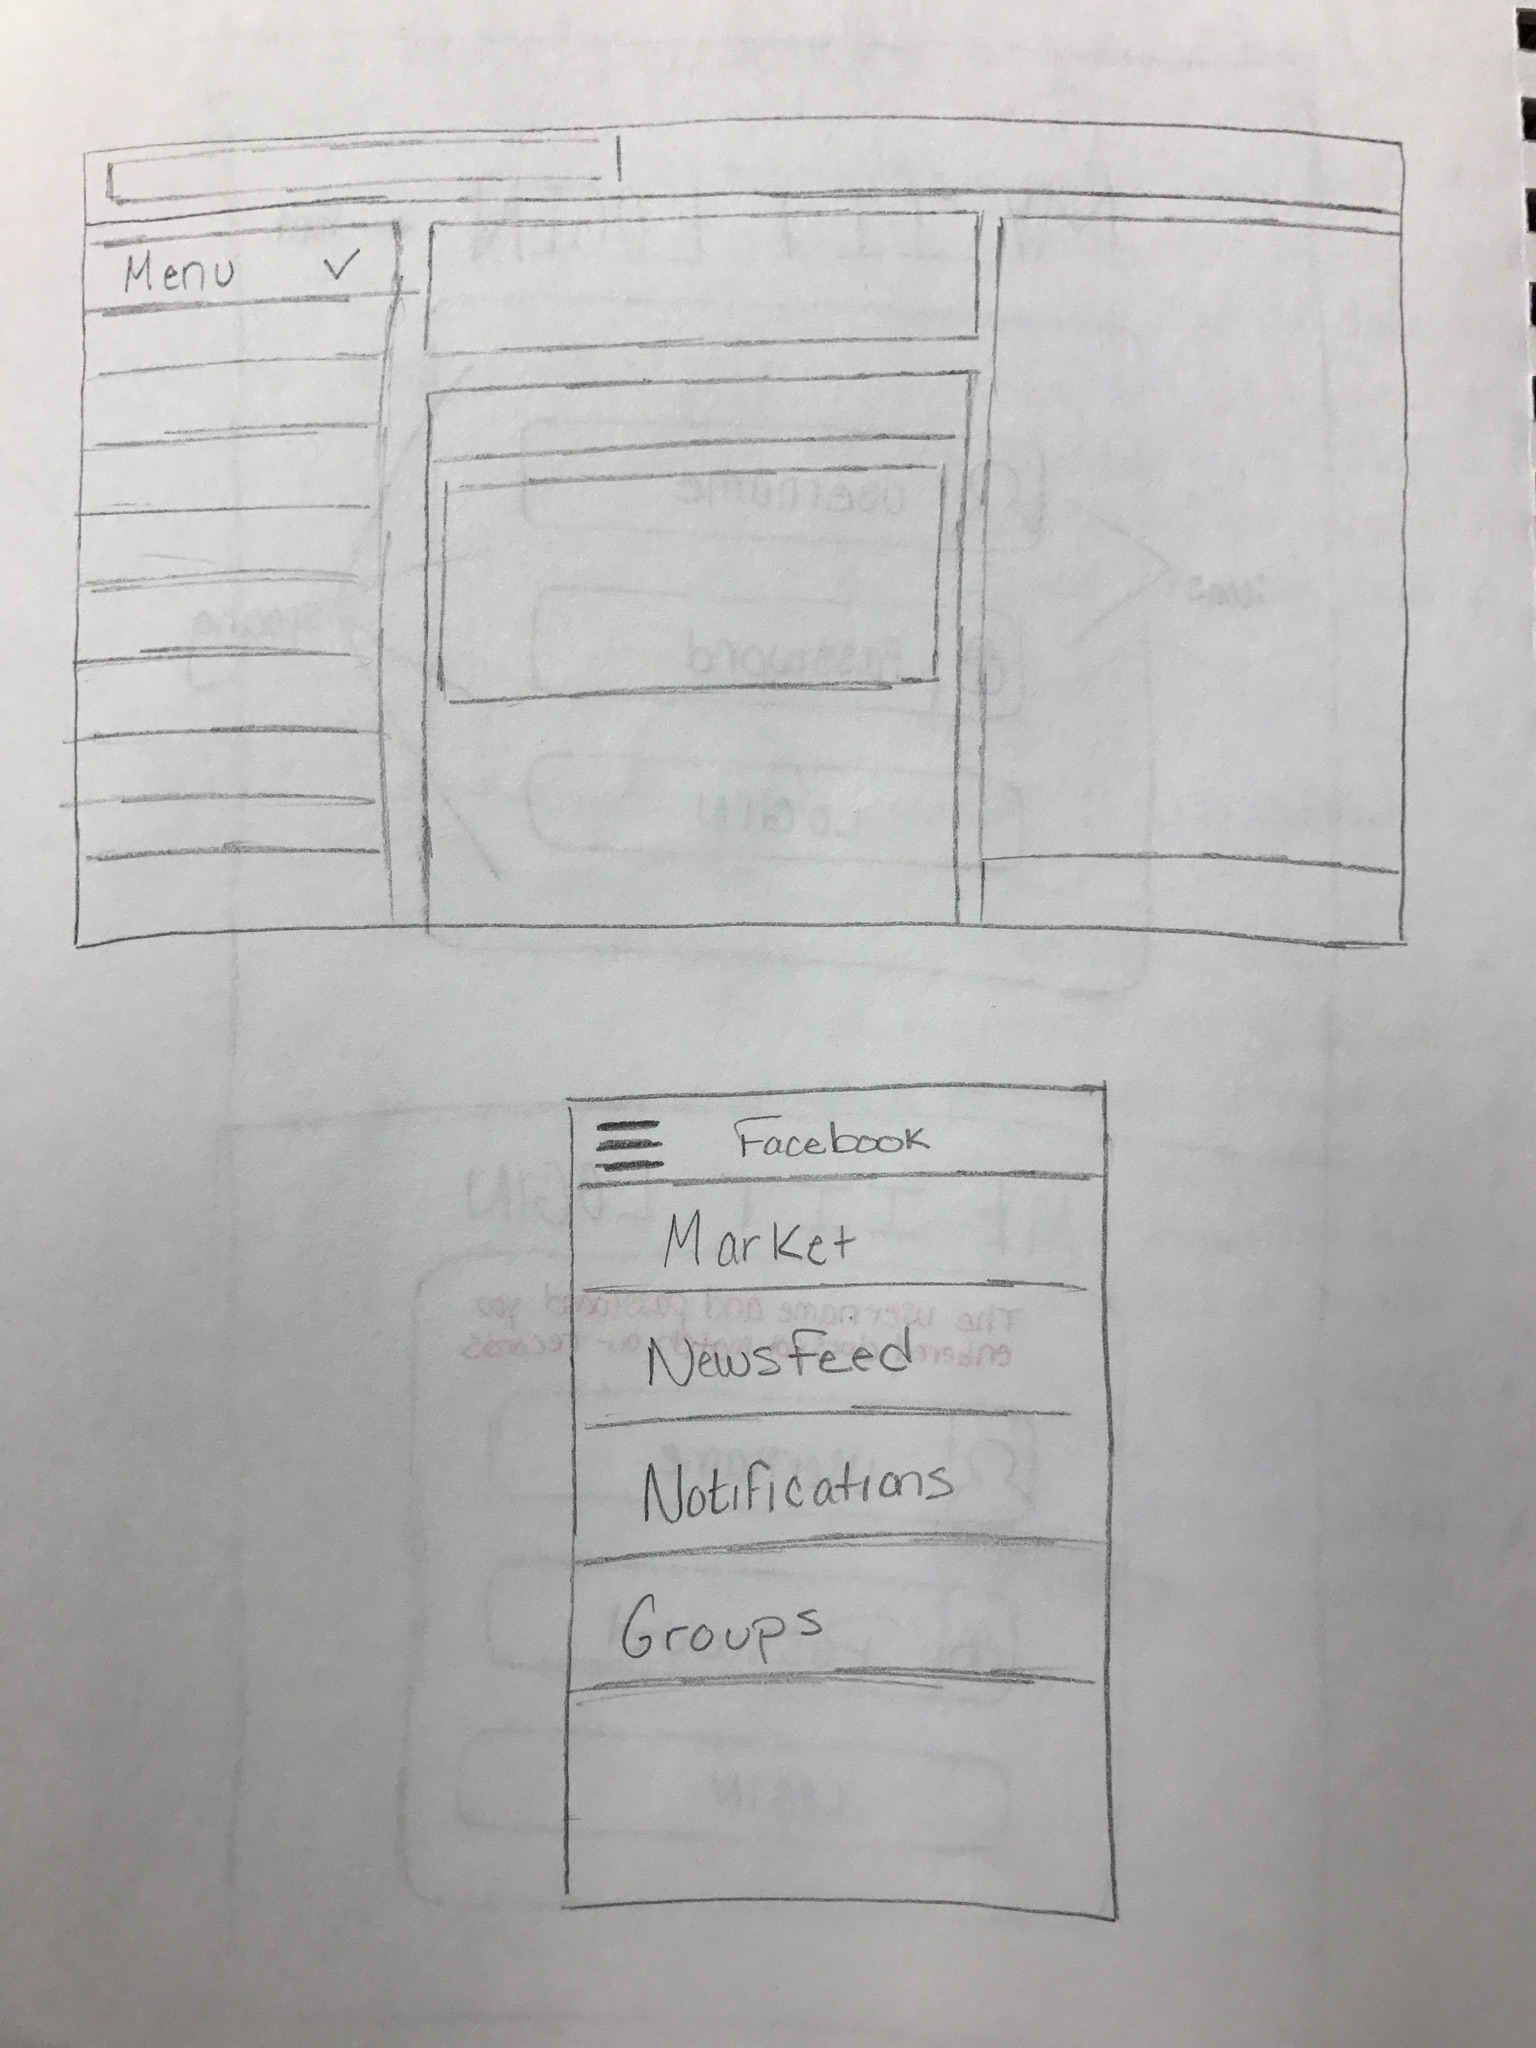 Menu
Facebook
Market
Newsfeed
Notifications
Groups